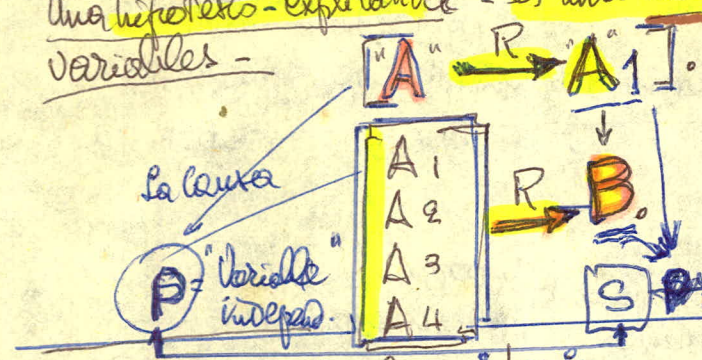 Una hipótesis - explicativa
variables -
["A" R "A1].
La causa
A1
A2 R B.
A3
A4
P = "Variable
independ.
S P